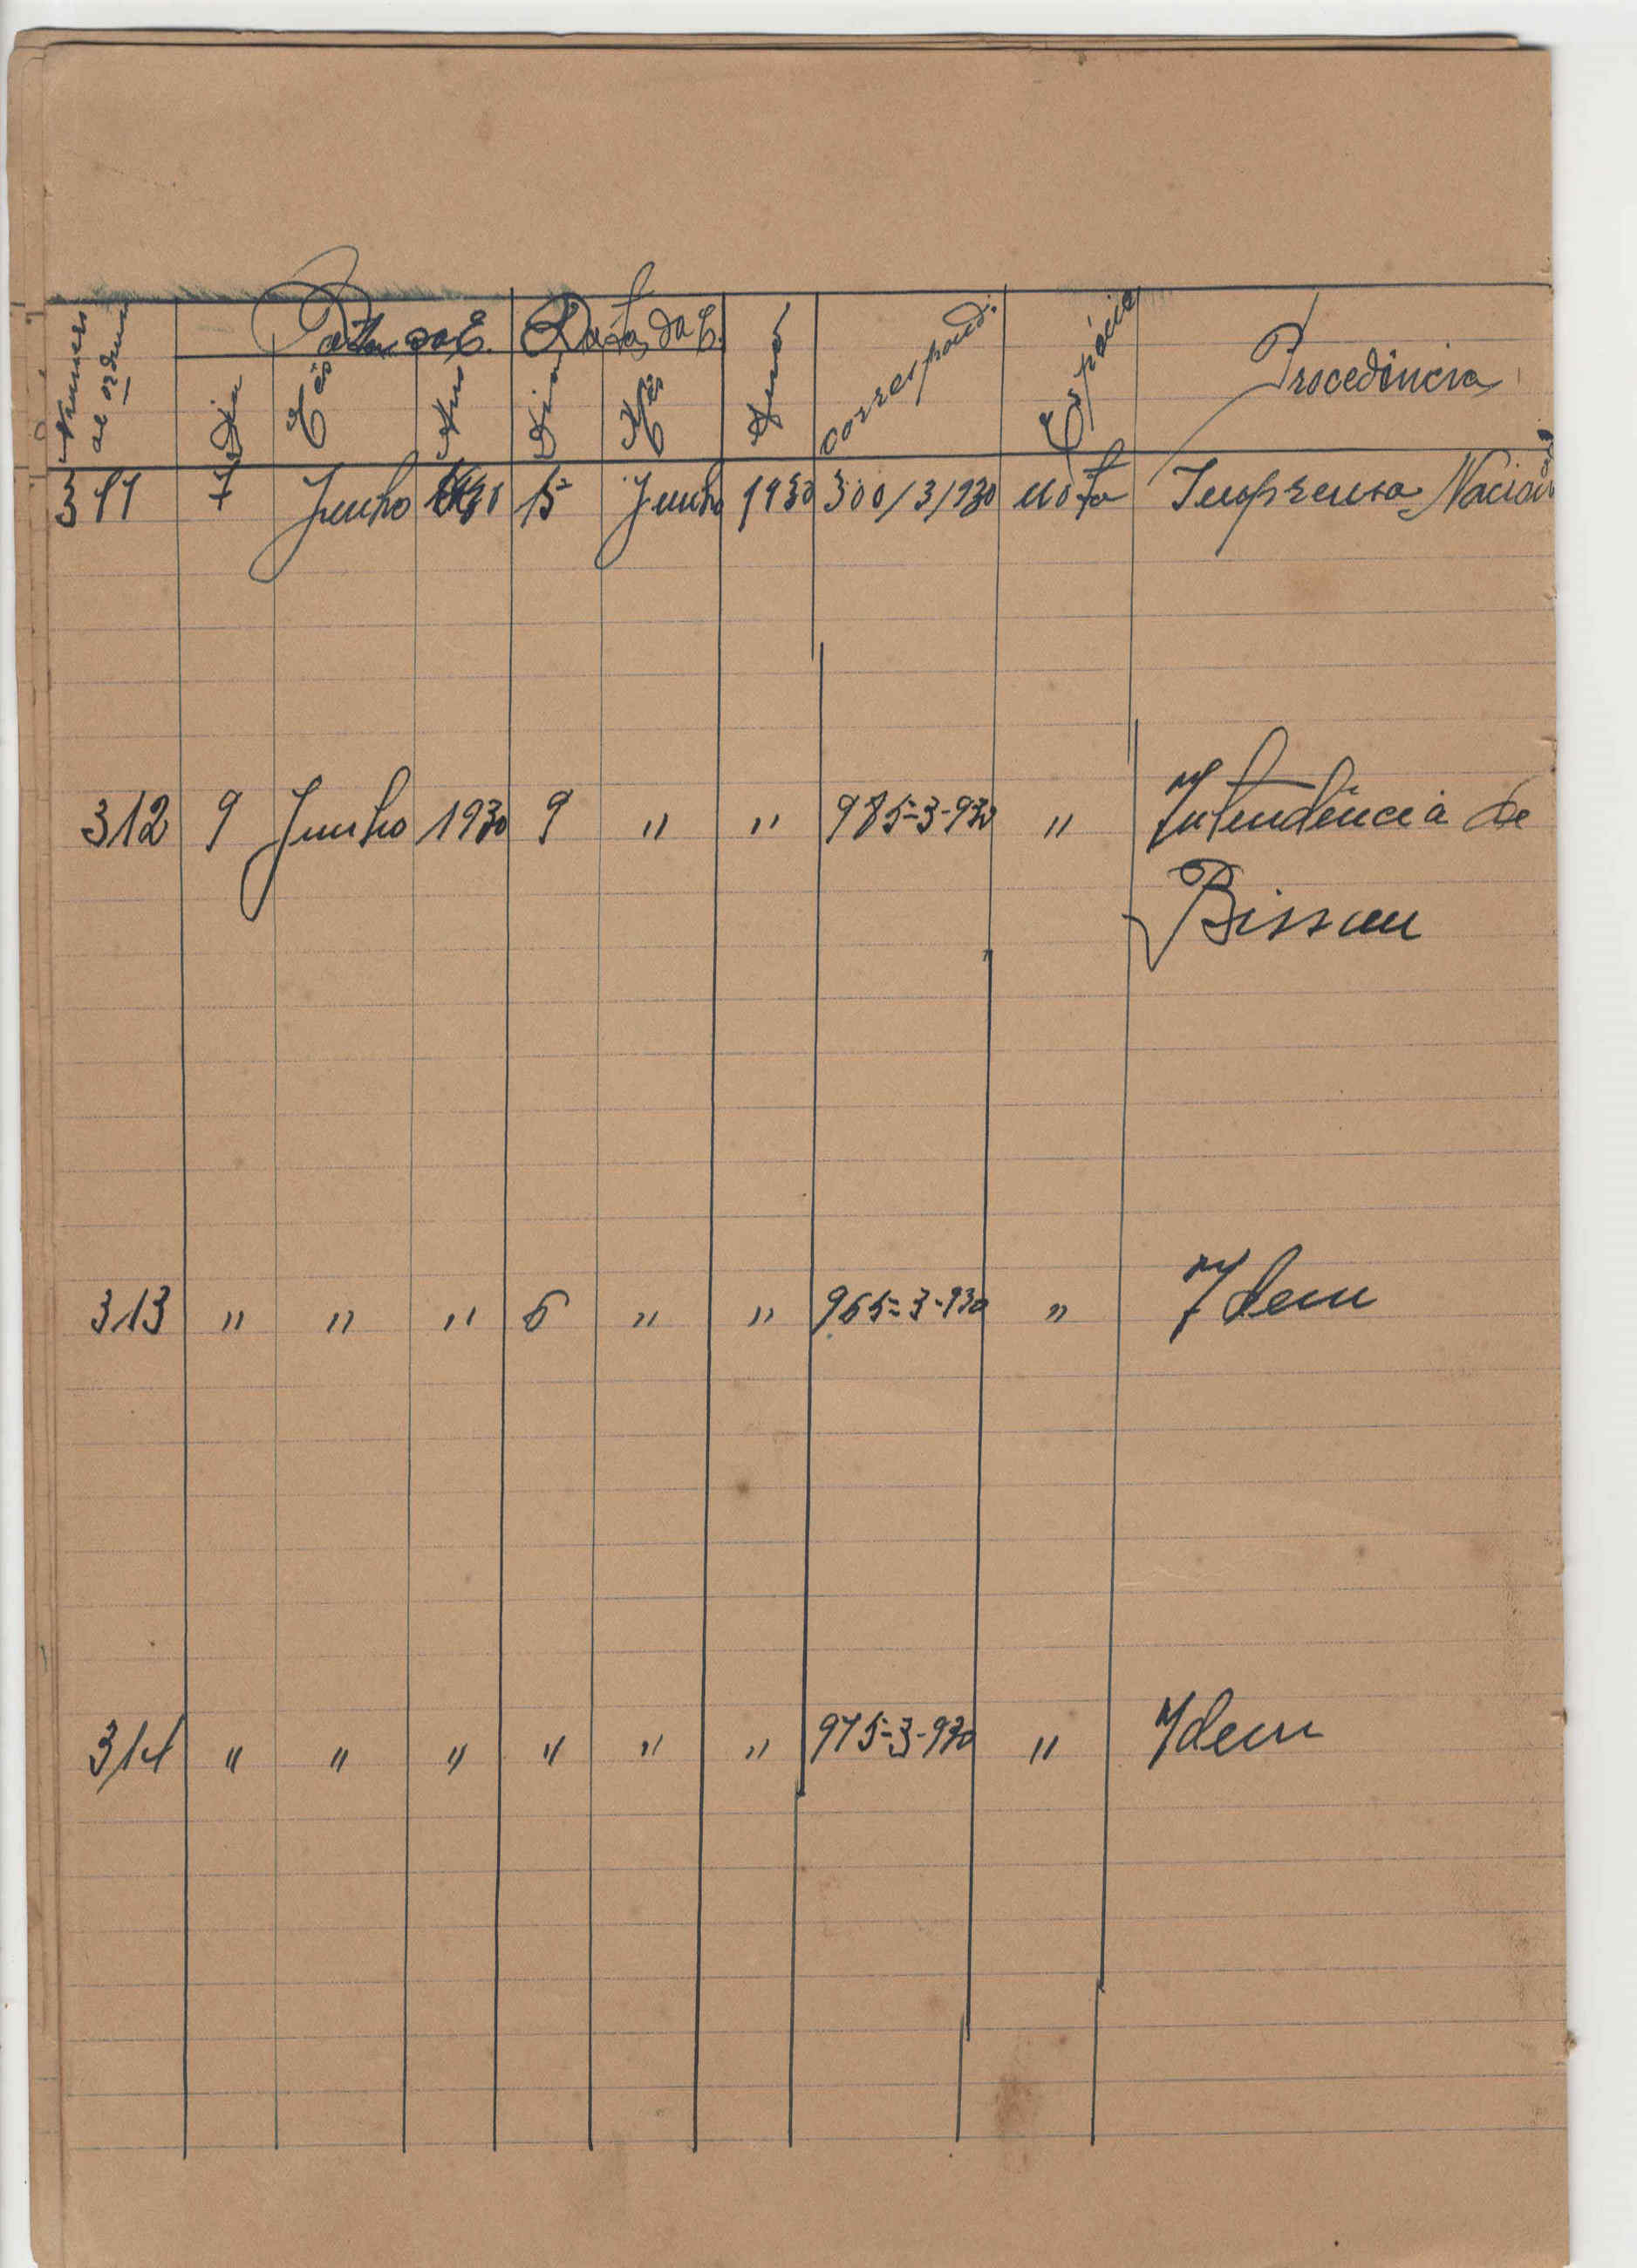 Numero de ordem
Data da E. Data da E.
Dia Mês Ano Dia Mês Ano correspond: Espécie Procedência
311 7 Junho 1930 15 Junho 1930 300/3/930 nota Imprensa Nacional
312 9 Junho 1930 9 " " 985-3-930 " Intendência de
Bissau
313 " " " 6 " " 965-3-930 " Idem
314 " " " " " " 975-3-930 " Idem